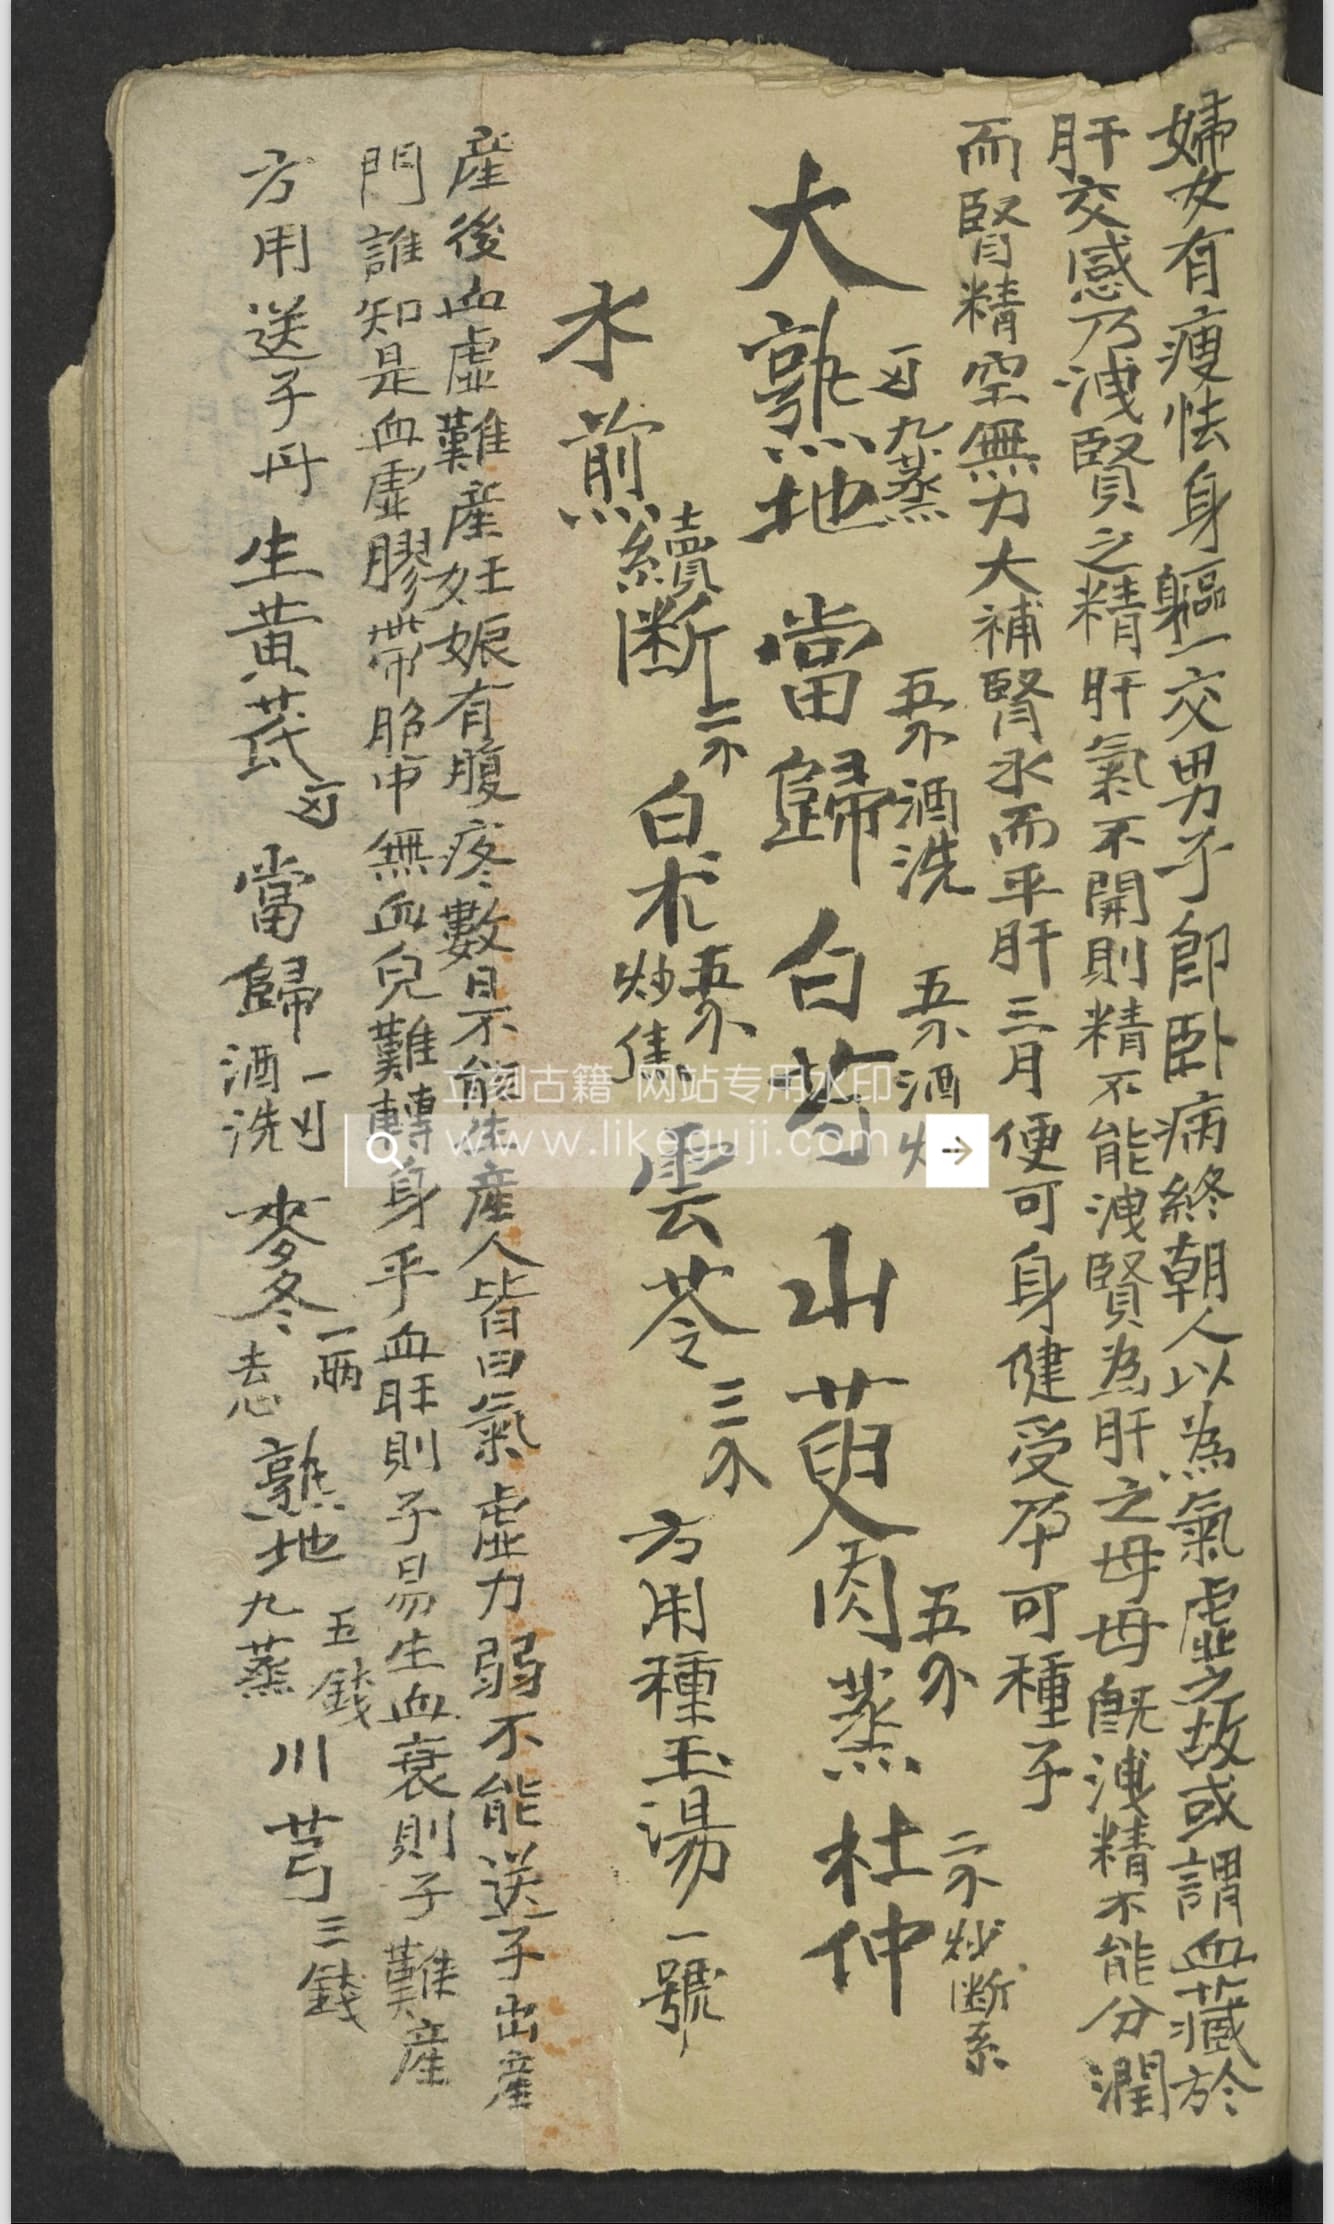 婦女有瘦怯身軀一交男子即卧病終朝人以為氣虛之故或謂血藏於
肝交感乃洩賢之精肝氣不開則精不能洩賢為肝之母母既洩精不能分潤
而腎精空無力大補腎水而平肝三月便可身健受孕可種子
大熟地 九蒸 當歸 五分 酒洗 白芍 五分 酒炒 山萸肉 五分 蒸 杜仲 二分 炒断系
水煎 續断 二分 白朮 五分 炒焦 雲苓 三分 方用種玉湯一號
産後血虛難産妊娠有腹疼數日不能生産人皆曰氣虛力弱不能送子出産
門誰知是血虛膠帯胞中無血兒難轉身乎血旺則子易生血衰則子難産
方用送子丹 生黄茋 當歸 酒洗 麥冬 一两 去心 熟地 五錢 九蒸 川芎 三錢
立刻古籍 网站专用水印
www.likeguji.com